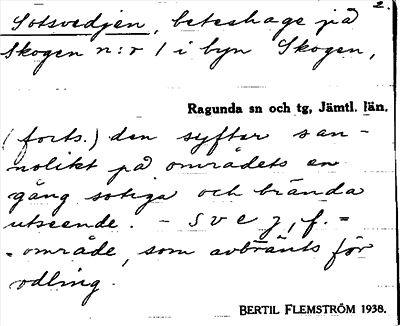 2.
Sotsvedjen, beteshage på
Skogen n:r 1 i byn Skogen,
Ragunda sn och tg, Jämtl. län.
(forts.) den syftar san-
nolikt på områdets en
gång sotiga och brända
utseende. - svedj, f. =
= område, som avbränts för
odling.
BERTIL FLEMSTRÖM 1938.